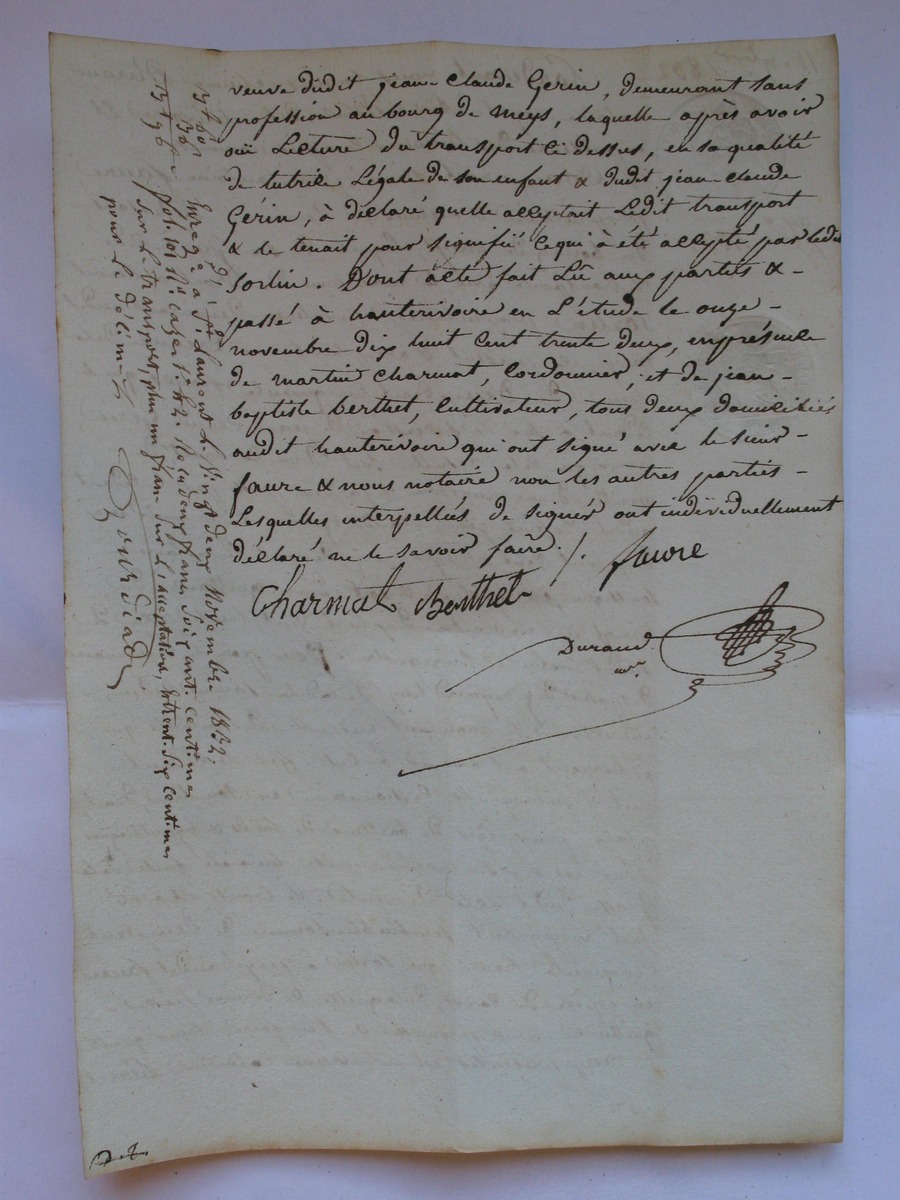 veuve dudit jean-Claude Gerin, demeurant sans
profession au bourg de meys, laquelle après avoir
ouï Lecture du transport ci dessus, en sa qualité
de tutrice Légale de son enfant & dudit jean-claude
Gérin, à déclaré quelle acceptait Ledit transport
& le tenait pour signifié ce qui à été accepté par ledit
Sorlin. Dont acte fait Lû aux parties & -
passé à hauterivoire en L'étude le onze -
novembre dix huit cent trente deux, en présence
de martin Charmat, Cordonnier, et de jean -
baptiste berthet, Cultivateur, tous deux domiciliés
audit hauterivoire qui ont signé avec le sieur -
faure & nous notaire non les autres parties -
Lesquelles interpellés de signér ont individuellement
déclaré ne le savoir faire ./. faure
Charmat Berthet
Durand
Enreg. à St. Laurent le Vingt deux Novembre 1832,
fol. c. 1. et 2. Reçu deux francs Soixante centimes
sur le transport, plus un franc sur l'acceptation, et trente-Six centimes
pour le décime